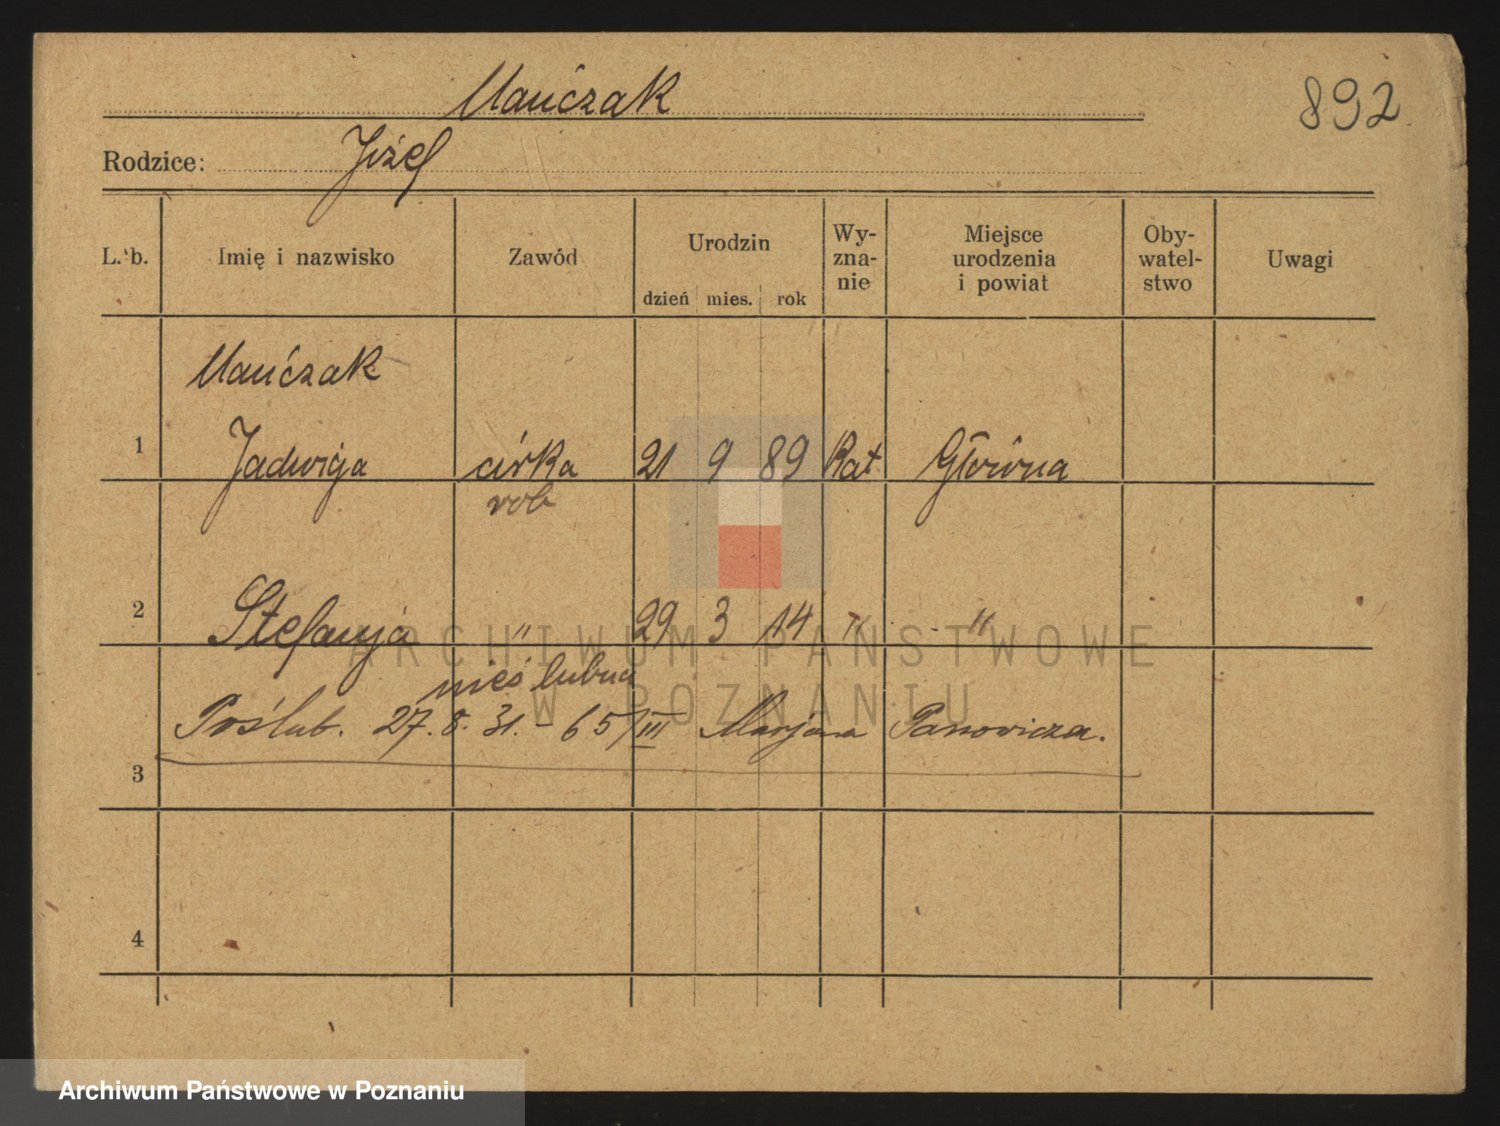 Mańczak
892
Rodzice: Józef
L. b. Imię i nazwisko Zawód Urodzin dzień mies. rok Wy-zna-nie Miejsce urodzenia i powiat Oby-watel-stwo Uwagi
Mańczak
1 Jadwiga córka 21 9 89 Kat Główna
rob
2 Stefanja " 29 3 14 " "
nieślubna
Poślub. 27.8.31. - 65/III Marjana Panowicza.
3
4
ARCHIWUM PAŃSTWOWE
W POZNANIU
Archiwum Państwowe w Poznaniu